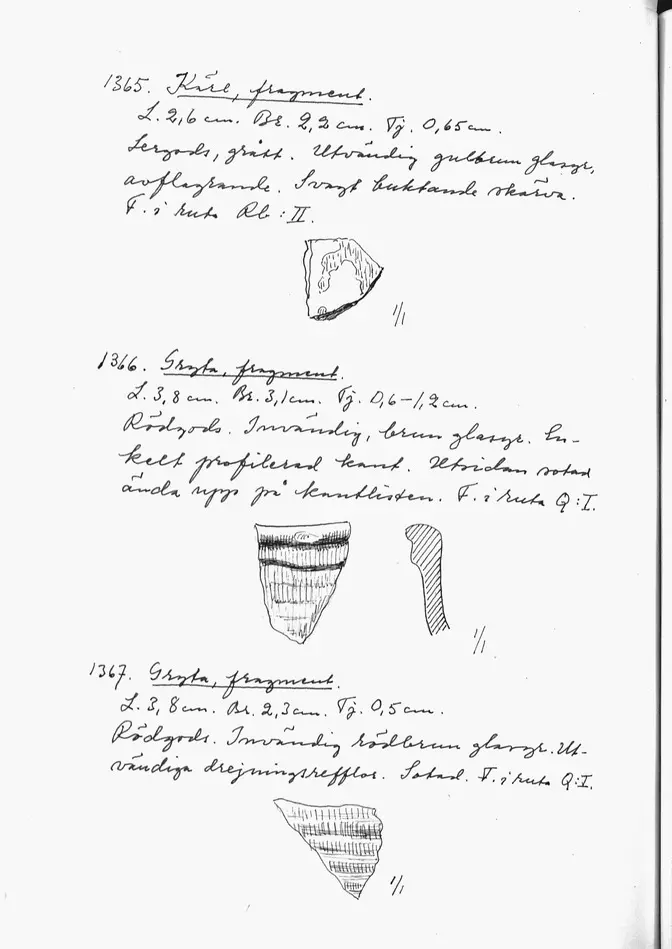 1365. Kärl, fragment.
L. 2,6 cm. Br. 2,2 cm. Tj. 0,65 cm.
Lergods, grått. Utvändig gulbrun glasyr,
avflagrande. Svagt buktande skärva.
F. i ruta Rb : II.
1/1
1366. Gryta, fragment.
L. 3,8 cm. Br. 3,1 cm. Tj. 0,6-1,2 cm.
Rödgods. Invändig, brun glasyr. En-
kelt profilerad kant. Utsidan sotad
ända upp på kantlisten. F. i ruta Q:I.
1/1
1367. Gryta, fragment.
L. 3,8 cm. Br. 2,3 cm. Tj. 0,5 cm.
Rödgods. Invändig rödbrun glasyr. Ut-
vändiga drejningsrefflor. Sotad. F. i ruta Q:I.
1/1